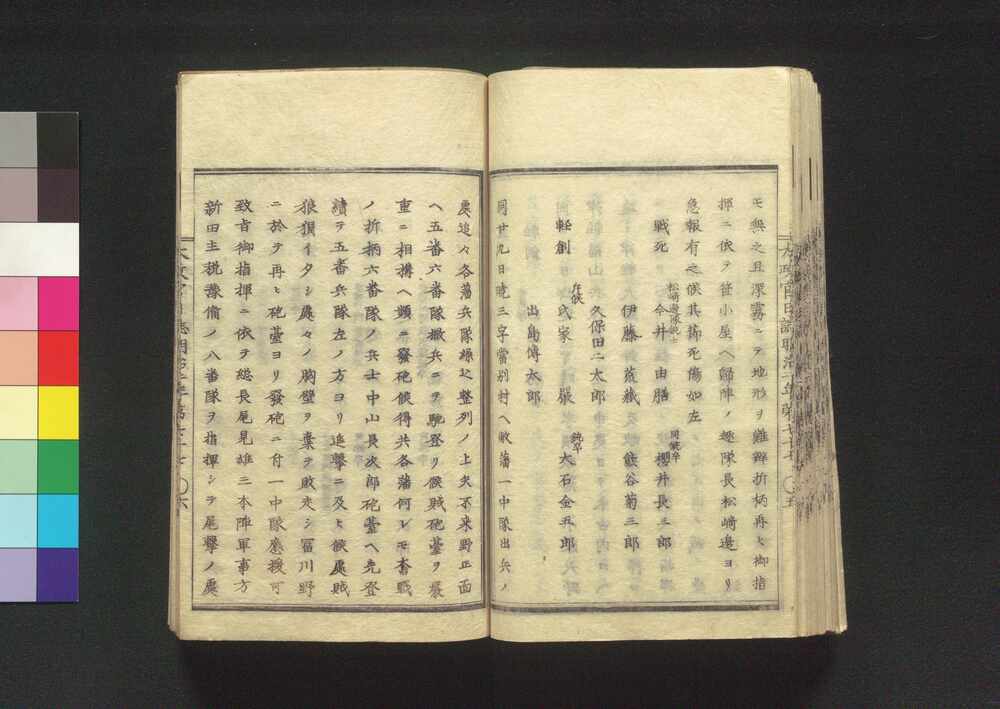 モ無之且深霧ニテ地形ヲ難辨折柄再ヒ御指
揮ニ依テ笹小屋ヘ歸陣ノ趣隊長松崎邊ヨリ
急報有之候其節死傷如左
戰死 松崎邊隊銃士 今井由膳 同銃卒 櫻井長三郎
伊藤荒藏 熊谷菊三郎
久保田二太郎
軽創 斥候 氏家嚴 銃卒 大石金五郎
出島傳太郎
同廿九日曉三字當別村ヘ敝藩一中隊出兵ノ
處追々各藩兵隊繰込整列ノ上矢不来野正面
ヘ五番六番隊撒兵ニテ馳登リ候賊砲臺ヲ嚴
重ニ相搆ヘ頻ニ發砲候得共各藩何レモ奮戰
ノ折柄六番隊ノ兵士中山長次郎砲臺ヘ先登
續テ五番兵隊左ノ方ヨリ追撃ニ及ヒ候處賊
狼狽イタシ處々ノ胸壁ヲ棄テ敗走シ冨川野
ニ於テ再ヒ砲臺ヨリ發砲ニ付一中隊應援可
致旨御指揮ニ依テ総長尾見雄三本陣軍事方
新田主税豫備ノ八番隊ヲ指揮シテ尾撃ノ處
太政官日誌明治二年第七十七 〇五
太政官日誌明治二年第七十七 〇六